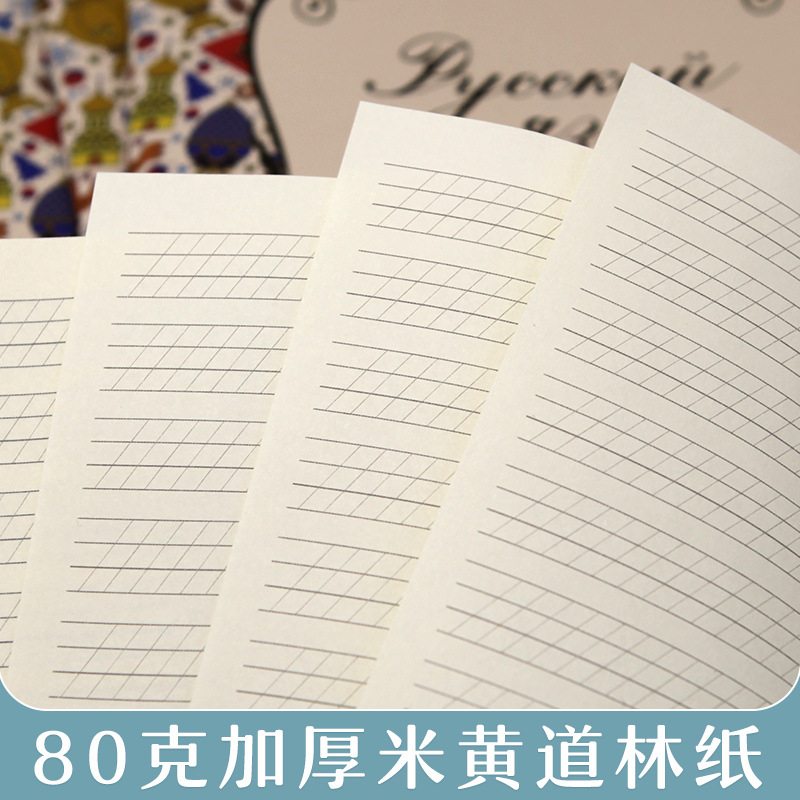 Русский
80克加厚米黄道林纸